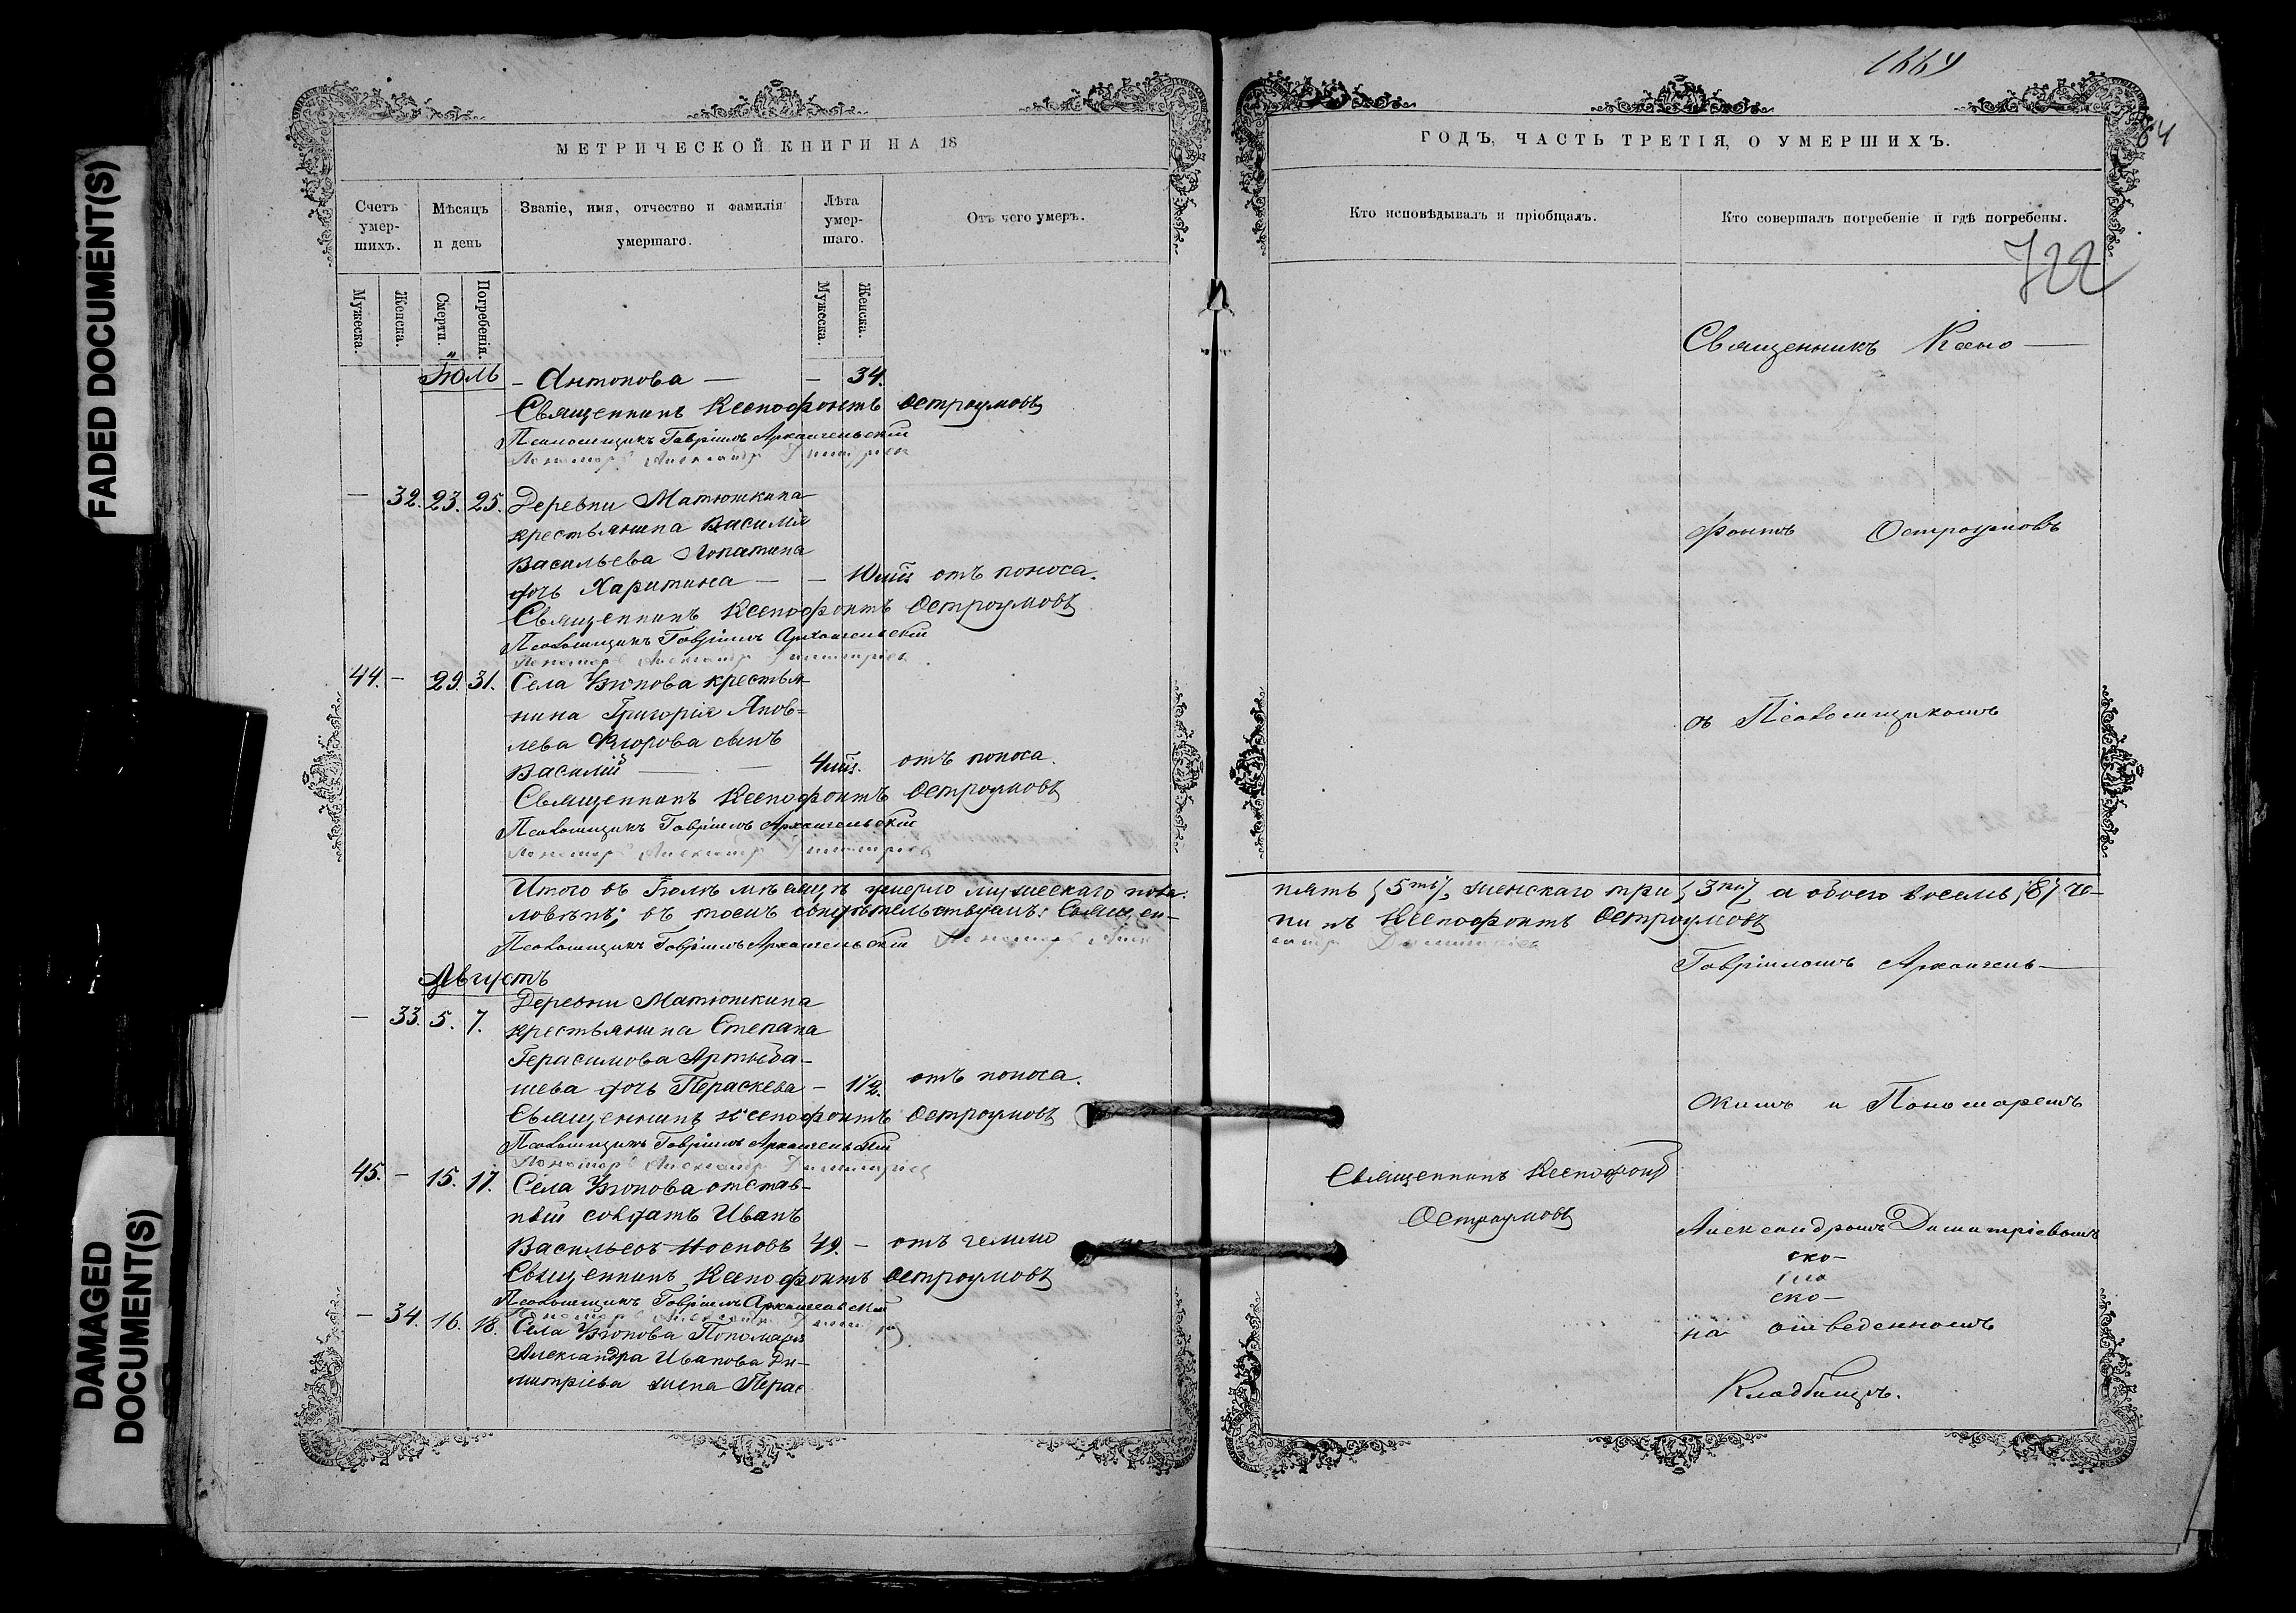 FADED DOCUMENT(S)
DAMAGED
DOCUMENT(S)
МЕТРИЧЕСКОЙ КНИГИ НА 18
Счетъ умер-шихъ.
Мѣсяцъ и день
Званіе, имя, отчество и фамилія умершаго.
Лѣта умер-шаго.
Отъ чего умеръ.
Мужеска.
Женска.
Смерти.
Погребенія.
Мужеска.
Женска.
Іюль – Антонова — – 34.
Священникъ Ксенофонтъ Остроумовъ
Псаломщикъ Гавріилъ Архангельскій
Пономарь Александръ Димитріевъ
— 32. 23. 25. Деревни Матюшкина
крестьянина Василія
Васильева Лопатина
дочь Харитина — – 10 мѣс. отъ поноса.
Священникъ Ксенофонтъ Остроумовъ
Псаломщикъ Гавріилъ Архангельскій
Пономарь Александръ Димитріевъ
44. – 29. 31. Села Узюкова крестья-
нина Григорія Яков-
лева сынъ
Василій — 4 мѣс. отъ поноса.
Священникъ Ксенофонтъ Остроумовъ
Псаломщикъ Гавріилъ Архангельскій
Пономарь Александръ Димитріевъ
Итого въ Іюлѣ мѣсяцѣ умерло мужескаго пола
ловѣкъ; въ томъ свидѣтельствуемъ: Священ-
Псаломщикъ Гавріилъ Архангельскій Пономарь Алек
Августъ
– 33. 5. 7. Деревни Матюшкина
крестьянина Степана
Герасимова Артыба-
шева дочь Параскева – 1 1/2. отъ поноса.
Священникъ Ксенофонтъ Остроумовъ
Псаломщикъ Гавріилъ Архангельскій
Пономарь Александръ Димитріевъ
45. – 15. 17. Села Узюкова отстав-
ный солдатъ Иванъ
Васильевъ Носковъ 49. –
Священникъ Ксенофонтъ Остроумовъ
Псаломщикъ Гавріилъ Архангельскій
– 34. 16. 18. Села Узюкова Пономаря
Александра Иванова Ди-
митріева жена Парас
64
ГОДЪ, ЧАСТЬ ТРЕТІЯ, О УМЕРШИХЪ.
Кто исповѣдывалъ и пріобщалъ.
Кто совершалъ погребеніе и гдѣ погребены.
722
Священникъ Ксено —
фонтъ Остроумовъ
съ Псаломщикомъ
пять {5ть}, женскаго три {3ри}, а обоего восемь {8} че-
никъ Ксенофонтъ Остроумовъ
сандръ Димитріевъ
Гавріиломъ Архангель —
скимъ и Пономаремъ
Священникъ Ксенофонтъ
Остроумовъ
Александромъ Димитріевымъ
на отведенномъ
Кладбищѣ.